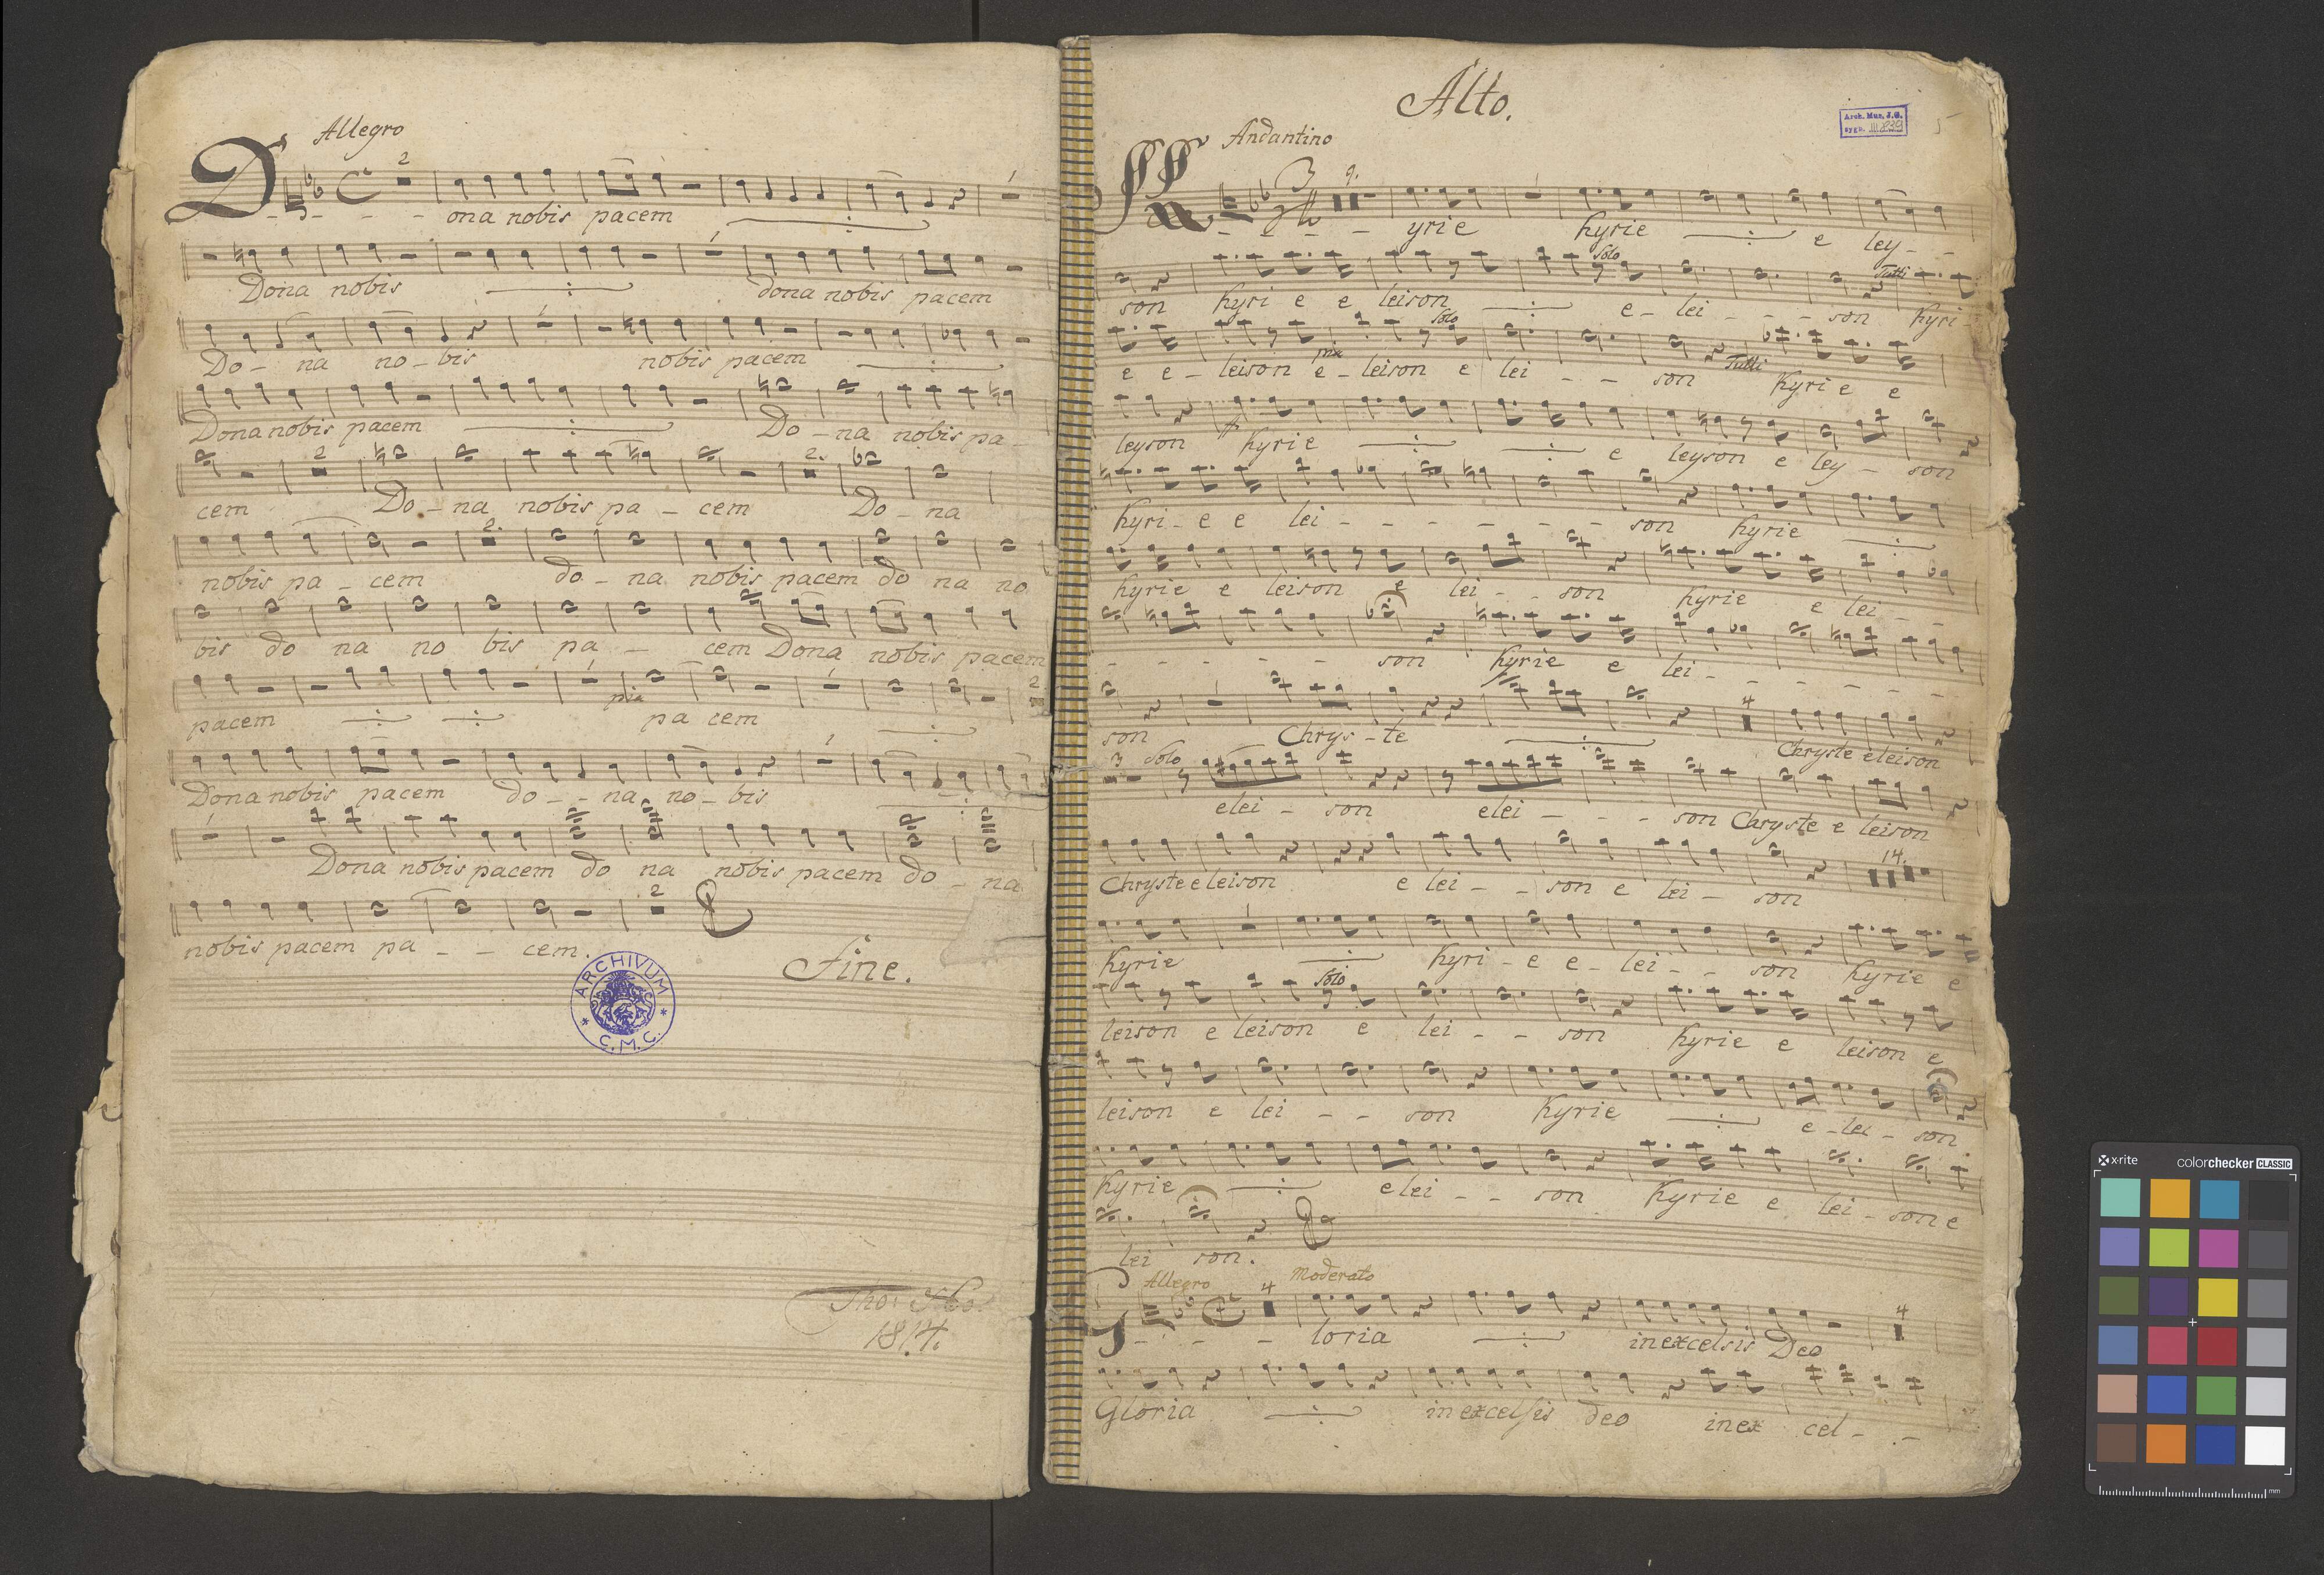 Allegro
2
Dona nobis pacem
Dona nobis dona nobis pacem
Do - na no - bis nobis pacem
Dona nobis pacem Do - na nobis pa -
2 2.
cem Do - na nobis pa - cem Do - na
2.
nobis pa - cem do - na nobis pacem do na no
bis do na no bis pa - cem Dona nobis pacem
pia 2
pacem pa cem
Dona nobis pacem do - - na no - bis
Dona nobis pacem do na nobis pacem do - na
2
nobis pacem pa - - cem.
Fine.
ARCHIVUM
* C.M.C. *
1814.
Alto.
Arch. Mus. J.G.
sygn. III 839
5
Andantino
3 9.
Kyrie Kyrie e ley - -
Solo Tutti
son Kyri e e leison e - lei - - - son Kyri -
Solo
pia Tutti
e e - leison e - leison e lei - - son Kyri e e
ff
leyson Kyrie e leyson e ley - son
Kyri - e e lei - - - - - - - son Kyrie
Kyrie e leison e lei - - son Kyrie e lei - -
- - - - - son Kyrie e lei - - - - - -
4
son Chrys - te Chryste eleison
3 Solo
elei - son elei - - - son Chryste e leison
14.
Chryste eleison e lei - - son e lei - son
Kyrie Kyri - e e - lei - - son Kyrie e
Solo
leison e leison e lei - - son Kyrie e leison e
leison e lei - - son Kyrie e - lei - son.
Kyrie elei - - son Kyrie e lei - son e
lei son.
Allegro 4 Moderato 4
G - - - - loria in excelsis Deo
Gloria in excelsis deo in ex cel - -
x-rite colorchecker CLASSIC
mm